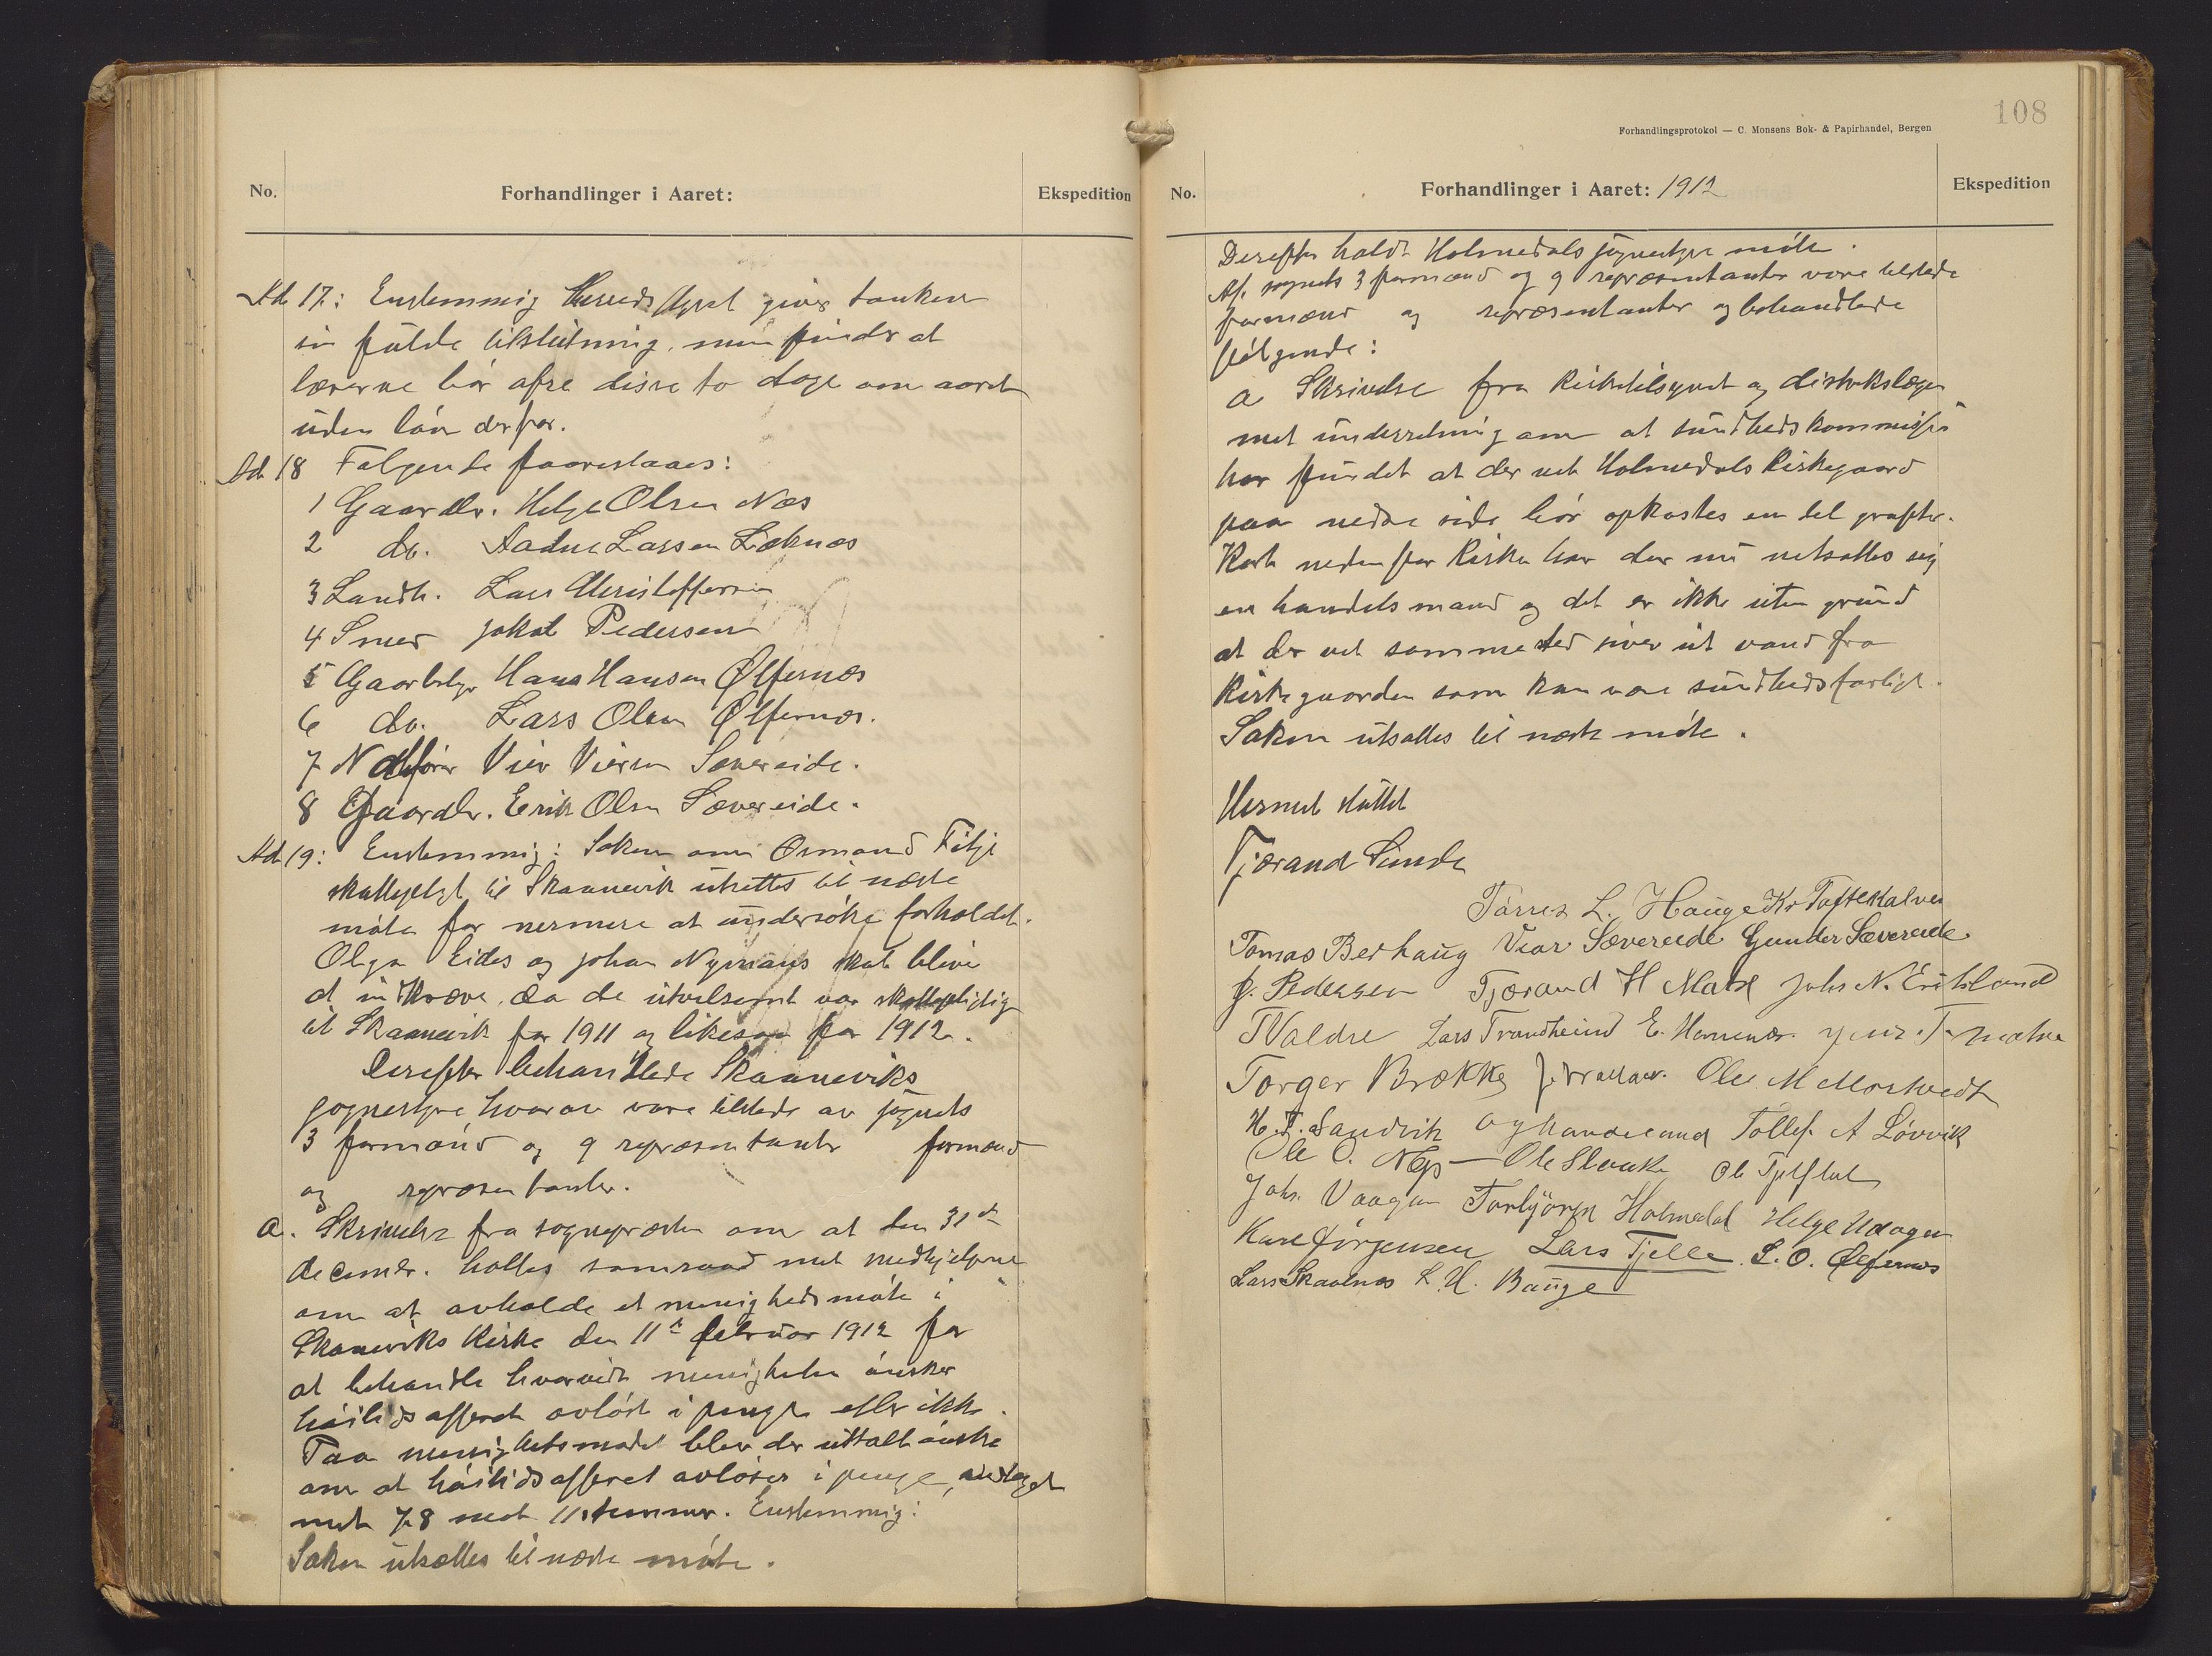 No.
Forhandlinger i Aaret:
Ekspedition
Ad 17: Enstemmig Herredsstyret giver tanken
sin fulde tilslutning, men finder at
lærerne bør ofre disse to dage om aaret
uden løn derfor.
Ad 18 Følgende foreslaaes:
1 Gaardbr. Helge Olsen Næs
2 do. Aadne Larsen Løknæs
3 Landh. Lars Christoffersen
4 Smed Jakob Pedersen
5 Gaardbr. Hans Hansen Ølfernæs
6 do. Lars Olsen Ølfernæs.
7 Viar Viarsen Sævereide.
8 Gaardbr. Erik Olsen Sævereide.
Ad 19: Enstemmig: Saken om Osmand Fitje
skattepligt til Skaanevik utsettes til næste
møte for nermere at undersøke forholdet.
Olga Eides og Johan Nymans skat blive
at indkræve, da de utvilsomt var skattepligtig
til Skaanevik for 1911 og likesaa for 1912.
Derefter behandlede Skaaneviks
sognestyre hvorav vare tilstede av sognets
3 formænd og 9 repræsentanter formænd
og repræsentanter.
a. Skrivelse fra sognepræsten om at den 31te
decembr. holtes samraad met medhjelperne
om at avholde et menighedsmøte i
Skaneviks Kirke den 11te februar 1912 for
at behandle hvorvidt menigheden ønsker
høitidsofferet avløst i penge eller ikke.
Paa menighetsmødet blev der uttalt ønske
om at høitidsofferet avløses i penge, vedtaget
met 78 mot 11 stemmer. Enstemmig:
Saken utsættes til næste møte.
108
Forhandlingsprotokol — C. Monsens Bok- & Papirhandel, Bergen
No.
Forhandlinger i Aaret: 1912
Ekspedition
Derefter holdt Holmedals sognestyre møte.
Af sognets 3 formænd og 9 repræsentanter vare tilstede
formænd og repræsentanter og behandlede
følgende:
a Skrivelse fra Kirketilsynet og distriktslægen
met underretning om at sundhedskommissjon
har fundet at der ved Holmedals Kirkegaard
paa nedre side bør opkastes en del grøfter.
Kort nedenfor Kirken har der nu netsattes sig
en handelsmand og det er ikke uten grund
at der ved samme sted siver ut vand fra
Kirkegaarden som kan være sundhedsfarligt.
Saken utsattes til næste møte.
Hermed sluttet
Tjærand Sunde
Tørres L. Hauge Kr Toftekalven
Tomas Berhaug Viar Sævereide Gunder Sævereide
J. Pedersen Tjærand H Matre Johs N. Eriksland
T Valdre Lars Trondheim E. Hamenæs Jens T. Matre
Torger Brekke Ole M Mortvedt
H. T. Sandvik Tollef. A Løvvik
Ole O. Næs — Ole Ole Tjelflat
Johs. Vaagen Torbjørn Holmedal Helge Udaagen
Kars Jørgensen Lars Tjelle L. O. Ølfernes
Lars Skaalnæs L. H. Bauge